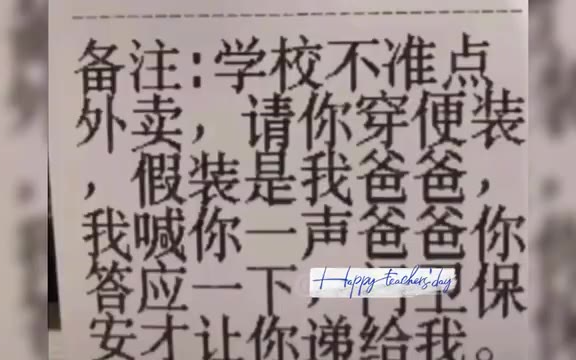 备注:学校不准点
外卖，请你穿便装
，假装是我爸爸，
我喊你一声爸爸你
答应一下，门卫保
Happy teachers'day
安才让你递给我。